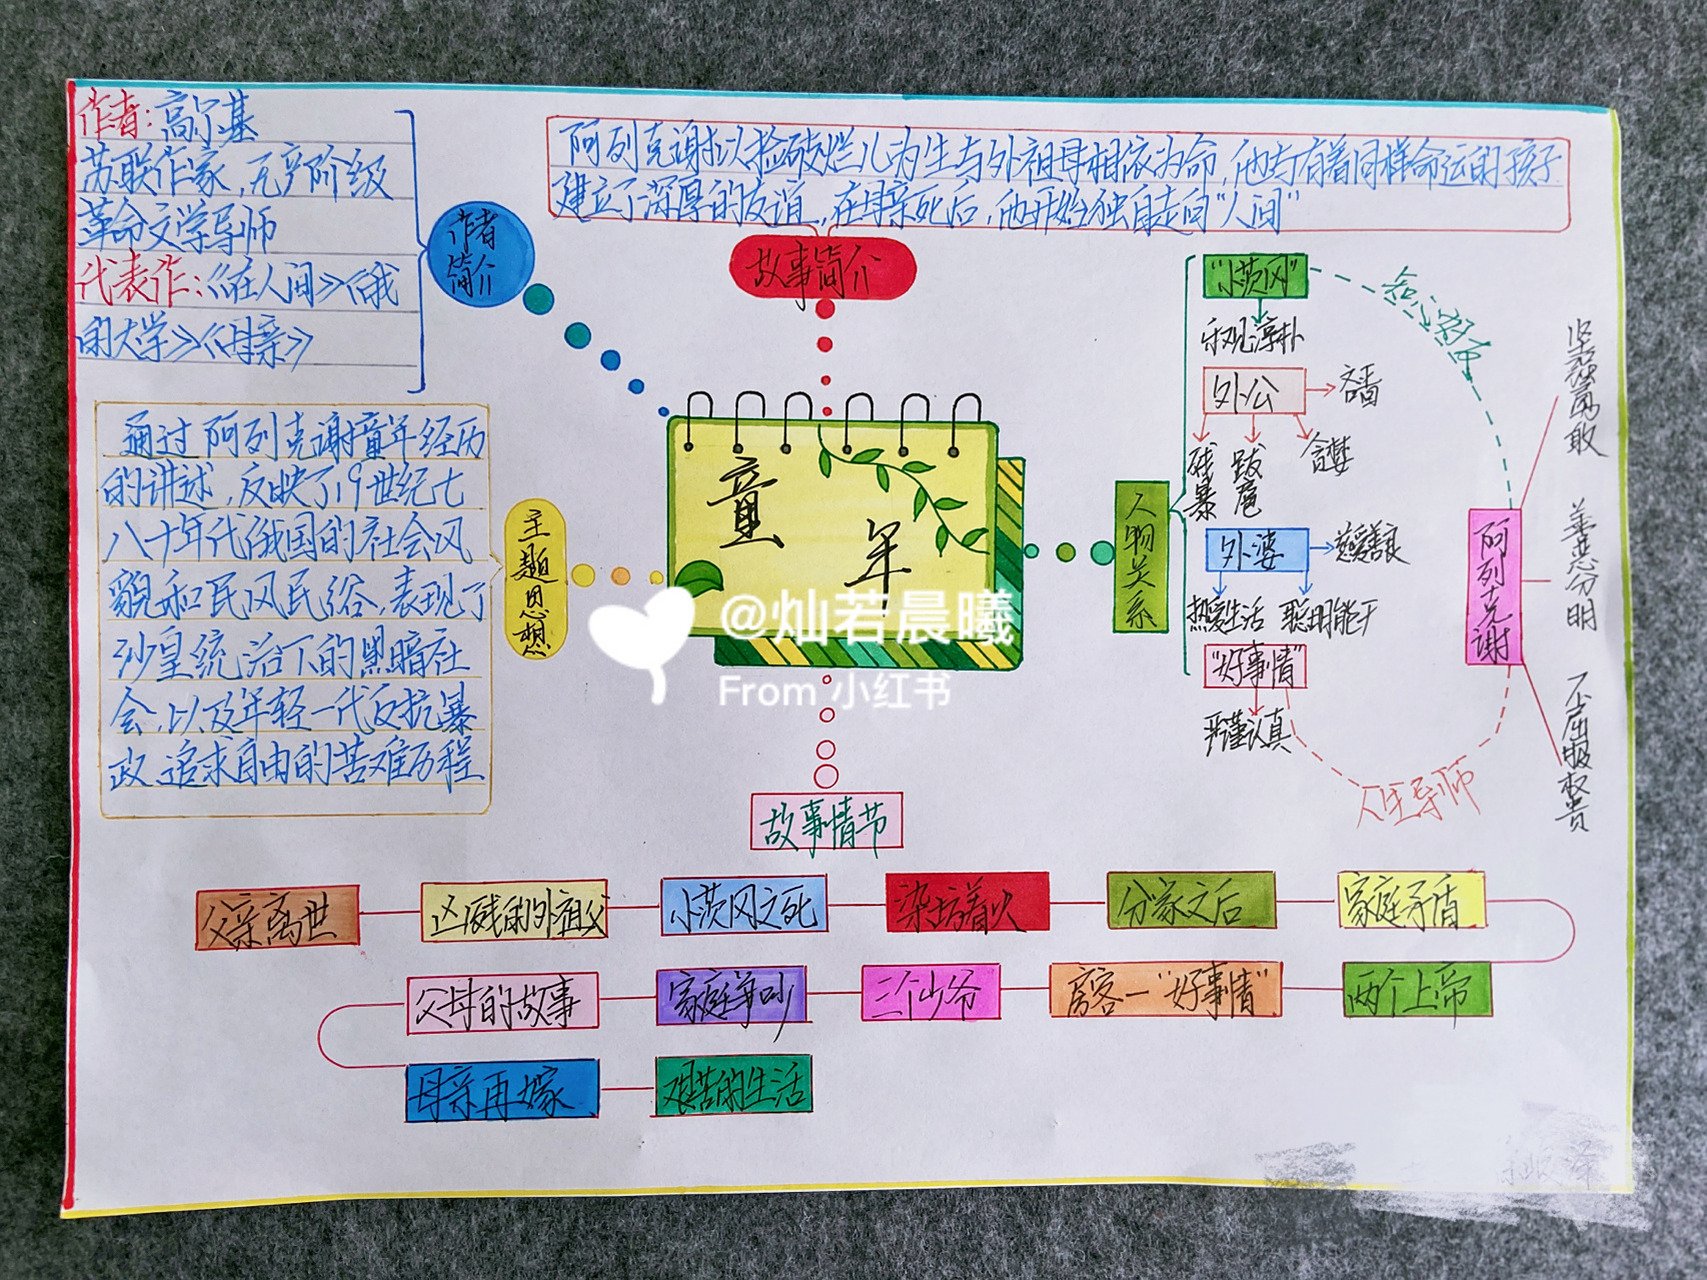 作者:高尔基
苏联作家,无产阶级
革命文学导师
代表作:《在人间》《我
的大学》《母亲》
作者
简介
阿列克谢以捡破烂儿为生与外祖母相依为命,他与有着同样命运的孩子
建立了深厚的友谊,在母亲死后,他开始独自走向“人间”
故事简介
通过阿列克谢童年经历
的讲述,反映了19世纪七
八十年代俄国的社会风
貌和民风民俗,表现了
沙皇统治下的黑暗社
会,以及年轻一代反抗暴
政、追求自由的苦难历程
主题思想
童年
人物关系
“小茨冈”
乐观淳朴
外公
吝啬
残暴
跋扈
贪婪
外婆
慈爱善良
热爱生活
聪明能干
“好事情”
严谨认真
知心朋友
阿列克谢
人生导师
坚强勇敢
善恶分明
不屈服权贵
故事情节
父亲离世
凶残的外祖父
小茨冈之死
染坊着火
分家之后
家庭矛盾
两个上帝
房客一“好事情”
三个少爷
家庭争吵
父母的故事
母亲再嫁
艰苦的生活
@灿若晨曦
From 小红书